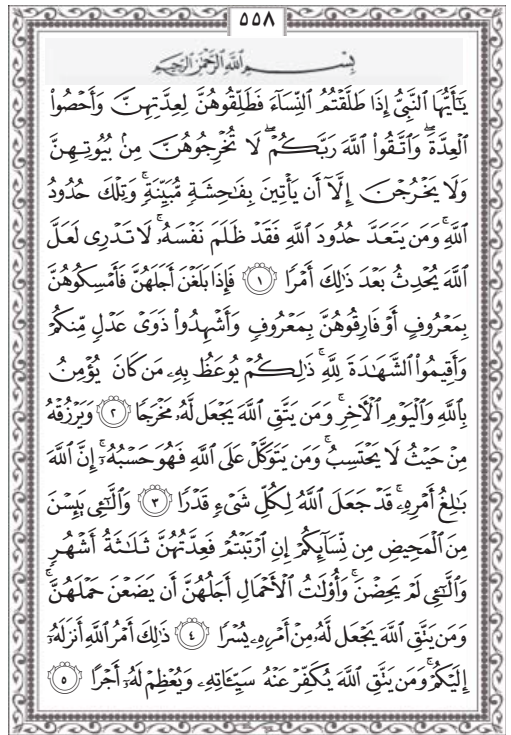 ٥٥٨
بِسْمِ ٱللَّهِ ٱلرَّحْمَٰنِ ٱلرَّحِيمِ
يَٰٓأَيُّهَا ٱلنَّبِىُّ إِذَا طَلَّقْتُمُ ٱلنِّسَآءَ فَطَلِّقُوهُنَّ لِعِدَّتِهِنَّ وَأَحْصُوا۟
ٱلْعِدَّةَ ۖ وَٱتَّقُوا۟ ٱللَّهَ رَبَّكُمْ ۖ لَا تُخْرِجُوهُنَّ مِنۢ بُيُوتِهِنَّ
وَلَا يَخْرُجْنَ إِلَّآ أَن يَأْتِينَ بِفَٰحِشَةٍ مُّبَيِّنَةٍ ۚ وَتِلْكَ حُدُودُ
ٱللَّهِ ۚ وَمَن يَتَعَدَّ حُدُودَ ٱللَّهِ فَقَدْ ظَلَمَ نَفْسَهُۥ ۚ لَا تَدْرِى لَعَلَّ
ٱللَّهَ يُحْدِثُ بَعْدَ ذَٰلِكَ أَمْرًا ١ فَإِذَا بَلَغْنَ أَجَلَهُنَّ فَأَمْسِكُوهُنَّ
بِمَعْرُوفٍ أَوْ فَارِقُوهُنَّ بِمَعْرُوفٍ وَأَشْهِدُوا۟ ذَوَىْ عَدْلٍ مِّنكُمْ
وَأَقِيمُوا۟ ٱلشَّهَٰدَةَ لِلَّهِ ۚ ذَٰلِكُمْ يُوعَظُ بِهِۦ مَن كَانَ يُؤْمِنُ
بِٱللَّهِ وَٱلْيَوْمِ ٱلْءَاخِرِ ۚ وَمَن يَتَّقِ ٱللَّهَ يَجْعَل لَّهُۥ مَخْرَجًا ٢ وَيَرْزُقْهُ
مِنْ حَيْثُ لَا يَحْتَسِبُ ۚ وَمَن يَتَوَكَّلْ عَلَى ٱللَّهِ فَهُوَ حَسْبُهُۥٓ ۚ إِنَّ ٱللَّهَ
بَٰلِغُ أَمْرِهِۦ ۚ قَدْ جَعَلَ ٱللَّهُ لِكُلِّ شَىْءٍ قَدْرًا ٣ وَٱلَّٰٓـِٔى يَئِسْنَ
مِنَ ٱلْمَحِيضِ مِن نِّسَآئِكُمْ إِنِ ٱرْتَبْتُمْ فَعِدَّتُهُنَّ ثَلَٰثَةُ أَشْهُرٍ
وَٱلَّٰٓـِٔى لَمْ يَحِضْنَ ۚ وَأُو۟لَٰتُ ٱلْأَحْمَالِ أَجَلُهُنَّ أَن يَضَعْنَ حَمْلَهُنَّ ۚ
وَمَن يَتَّقِ ٱللَّهَ يَجْعَل لَّهُۥ مِنْ أَمْرِهِۦ يُسْرًا ٤ ذَٰلِكَ أَمْرُ ٱللَّهِ أَنزَلَهُۥٓ
إِلَيْكُمْ ۚ وَمَن يَتَّقِ ٱللَّهَ يُكَفِّرْ عَنْهُ سَيِّـَٔاتِهِۦ وَيُعْظِمْ لَهُۥٓ أَجْرًا ٥